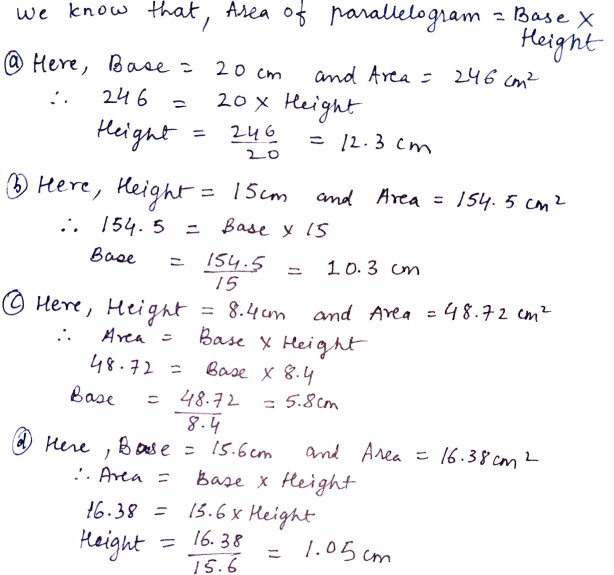 We know that, Area of parallelogram = Base ×
Height
ⓐ Here, Base = 20 cm and Area = 246 cm²
∴ 246 = 20 × Height
Height = 246/20 = 12.3 cm
ⓑ Here, Height = 15cm and Area = 154.5 cm²
∴ 154.5 = Base × 15
Base = 154.5/15 = 10.3 cm
ⓒ Here, Height = 8.4cm and Area = 48.72 cm²
∴ Area = Base × Height
48.72 = Base × 8.4
Base = 48.72/8.4 = 5.8cm
ⓓ Here, Base = 15.6cm and Area = 16.38 cm²
∴ Area = Base × Height
16.38 = 15.6 × Height
Height = 16.38/15.6 = 1.05 cm